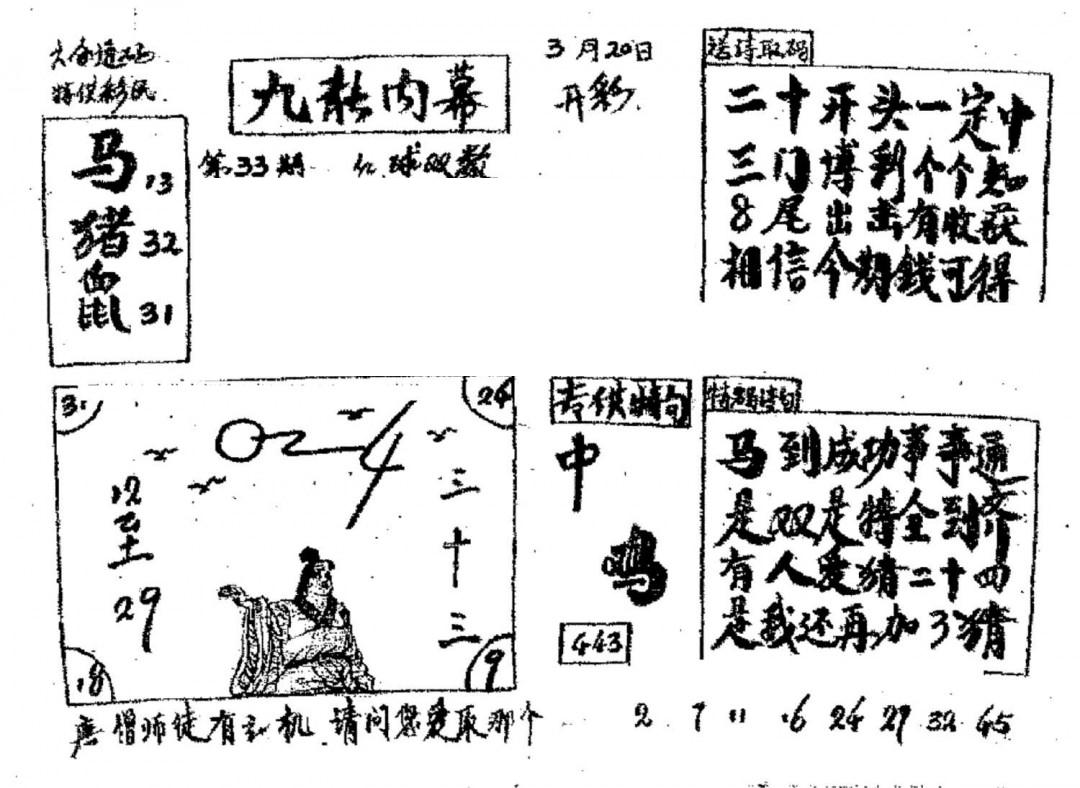 特供彩民
马 13
猪 32
鼠 31
九龙内幕
第33期 红球双数
3月20日
开彩
送诗取码
二十开头一定中
三门博到个个知
8尾出击有收获
相信今期錢可得
31
24
12至29
三十三
18
9
唐僧师徒有玄机 请问您爱取那个
专供特句
中
鸡
443
特码读句
马到成功事事通
是双是特全到齐
有人爱猜二十四
是我还再加3猜
2 7 11 16 24 29 32 45